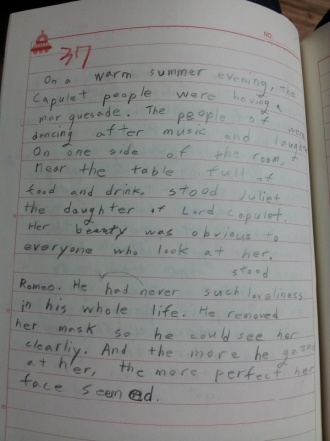 NO.
37
On a warm summer evening, The
Capulet people were having a
marquesade. The people of were
dancing after music and laughing
On one side of the room,
near the table full of
food and drink, stood Juliet
the daughter of Lord Capulet.
Her beauty was obvious to
everyone who look at her,
stood
Romeo. He had never such loveliness
in his whole life. He removed
her mask so he could see her
clearliy. And the more he gazed
at her, the more perfect her
face seemed.